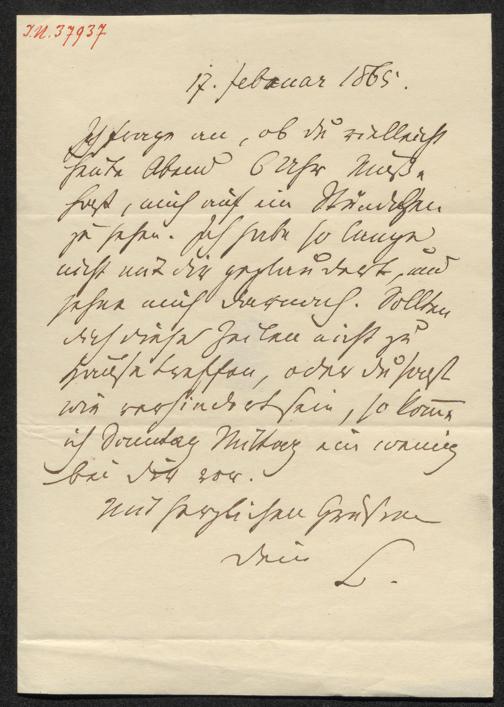 I.N. 37937
17. Februar 1865.
Ich frage an, ob du vielleicht
heute Abend 6 Uhr Muße
hast, mich auf ein Stündchen
zu sehen. Ich habe so lange
nicht mit dir geplaudert, und
sehne mich darnach. Sollten
dich diese Zeilen nicht zu
Hause treffen, oder du sonst
wie verhindert sein, so komme
ich Sonntag Mittag ein wenig
bei dir vor.
Mit herzlichen Grüßen
Dein
L.